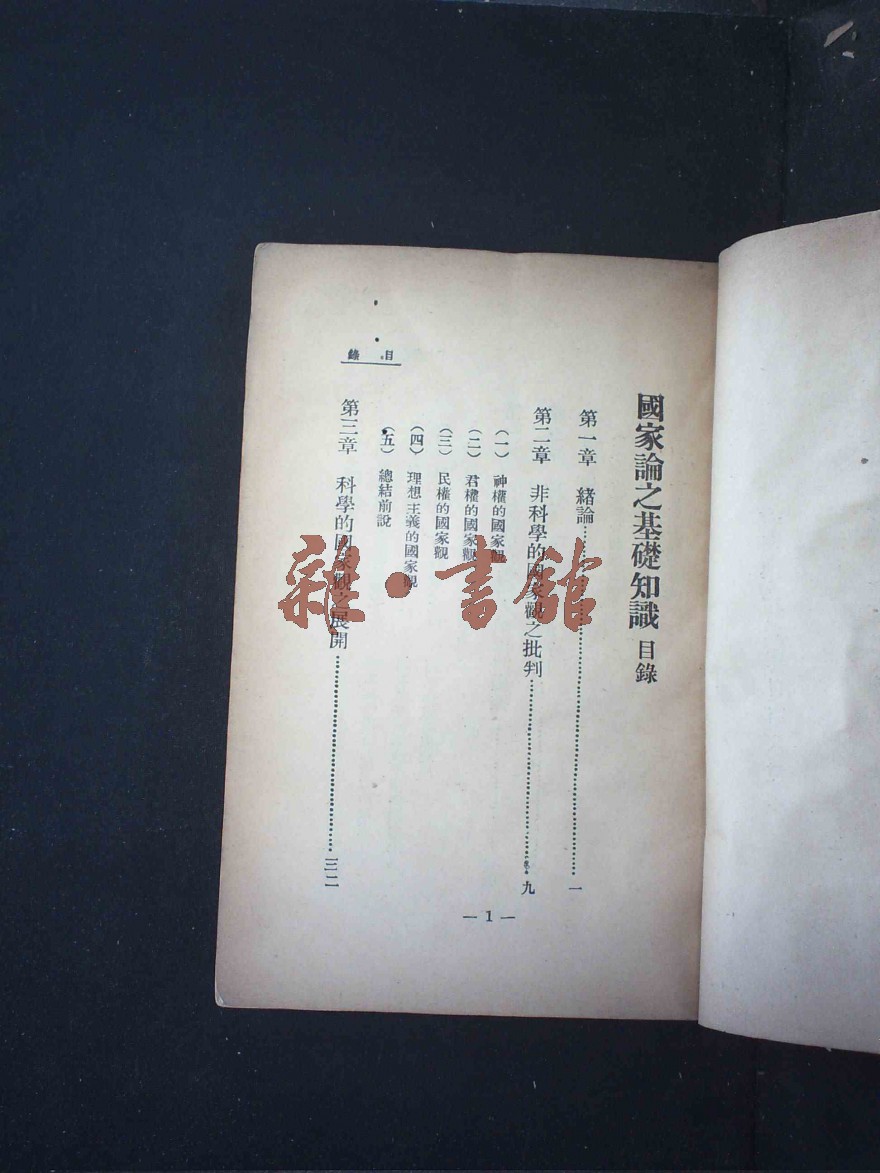 國家論之基礎知識 目錄
第一章 緒論……一
第二章 非科學的國家觀之批判……九
(一) 神權的國家觀
(二) 君權的國家觀
(三) 民權的國家觀
(四) 理想主義的國家觀
(五) 總結前說
目錄
第三章 科學的國家觀之展開……三二
— 1 —
雜·書館